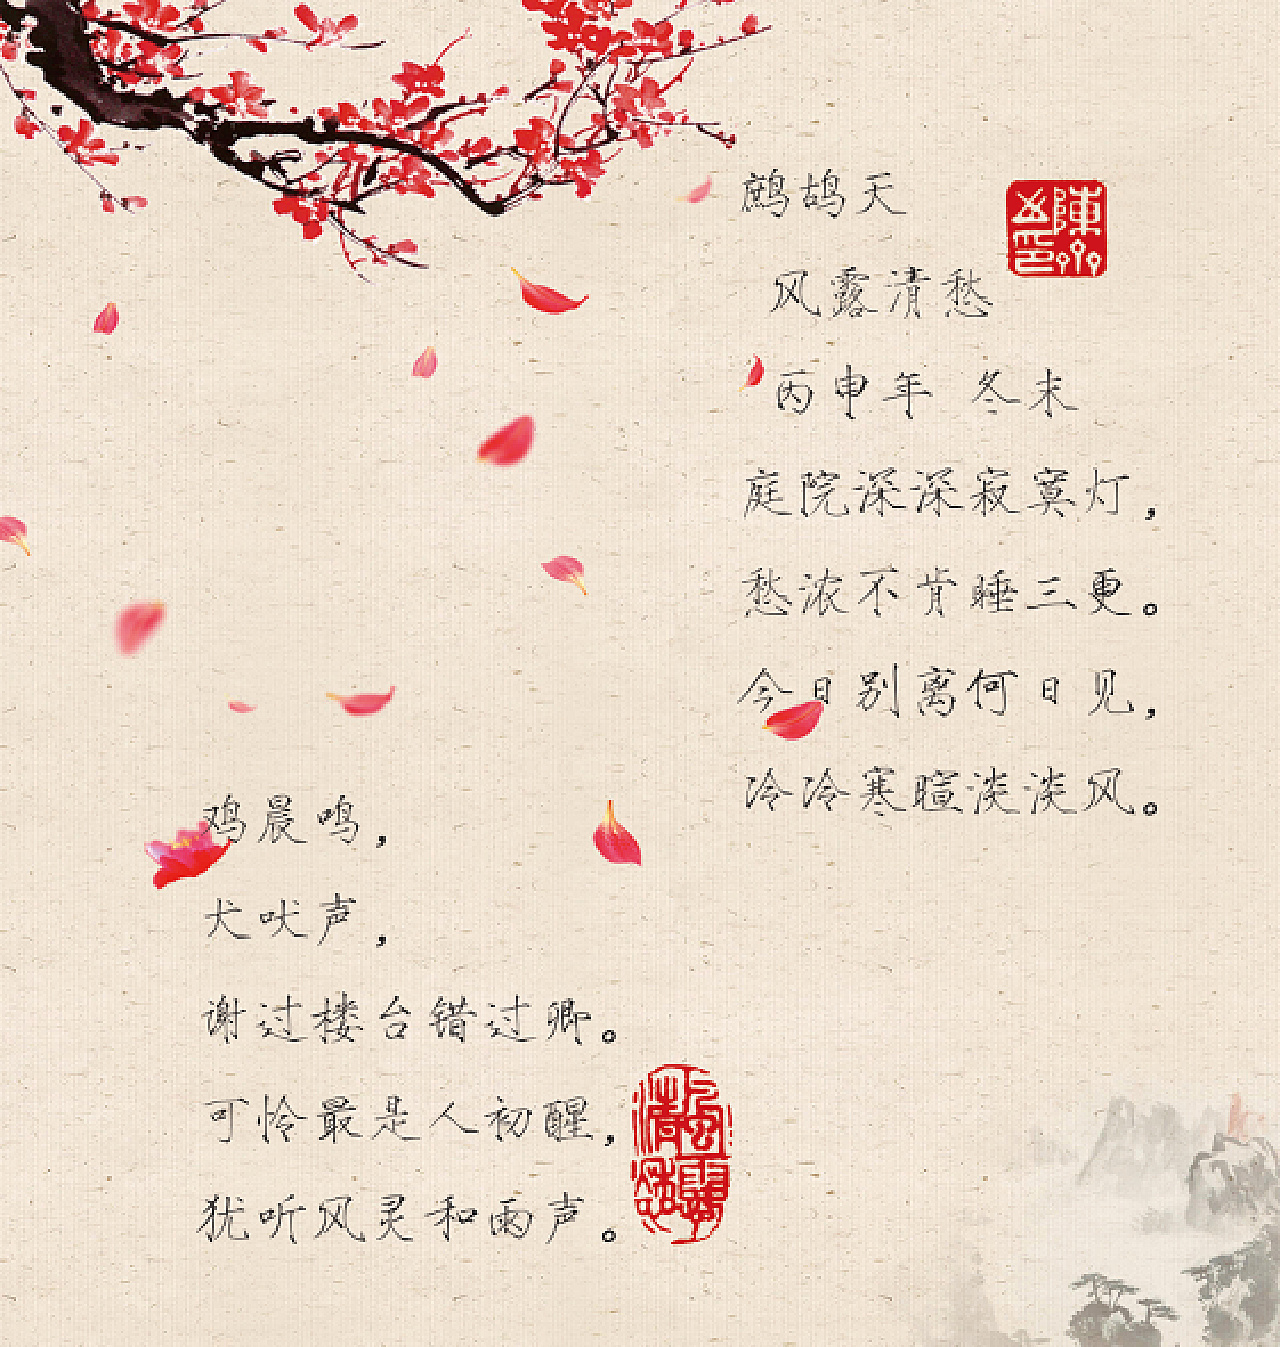 鹧鸪天
风露清愁
丙申年 冬末
庭院深深寂寞灯，
愁浓不肯睡三更。
今日别离何日见，
冷冷寒暄淡淡风。
鸡晨鸣，
犬吠声，
谢过楼台错过卿。
可怜最是人初醒，
犹听风灵和雨声。
风露清愁